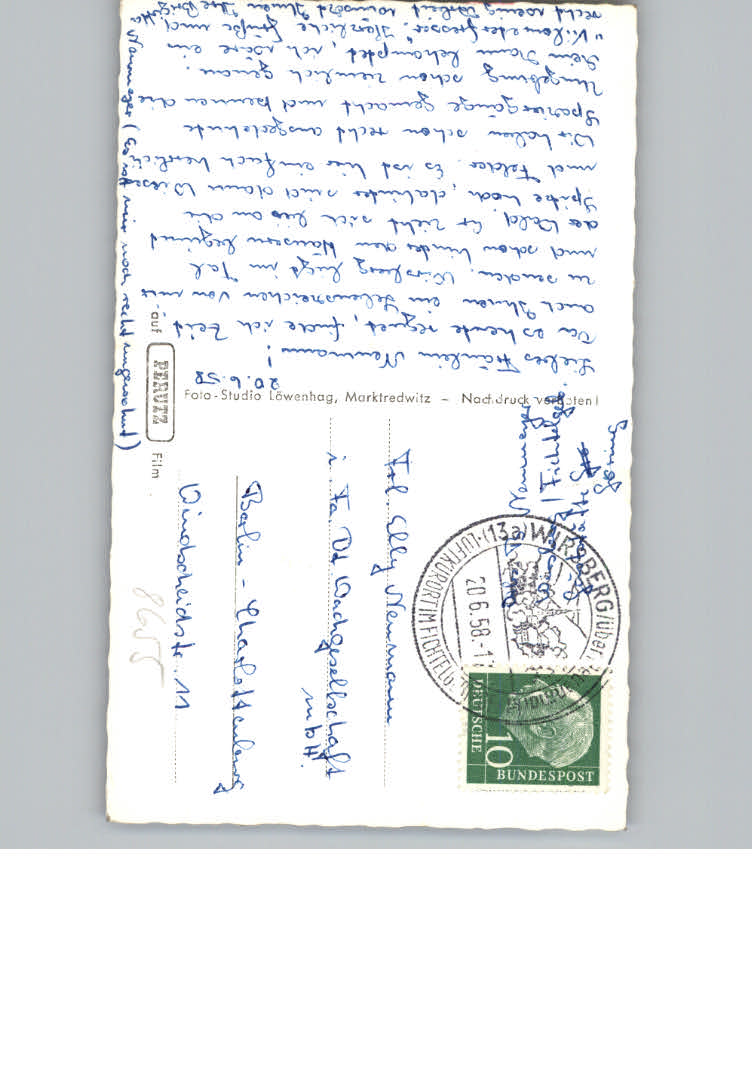 20.6.58
Liebes Fräulein Neumann!
Da es heute regnet, finde ich Zeit
auch Ihnen ein Lebenszeichen von mir
zu senden. Wirsberg liegt im Tal
und schon hinter den Häusern beginnt
der Wald. Er zieht sich bis an die
Spitze hoch, dahinter sind dann Wiesen
und Felder. Es ist hier einfach herrlich
Wir haben schon recht ausgedehnte
Spaziergänge gemacht und kennen die
Umgebung schon ziemlich genau.
Mein Mann behauptet, ich wäre ein
"Kilometerfresser". Herzliche Grüße und
recht wenig Arbeit wünscht Ihnen Ihre Brigitta
(Es ist mir noch recht ungewohnt)
Foto-Studio Löwenhag, Marktredwitz – Nachdruck verboten!
auf PERUTZ Film
Frl. Elly Neumann
i. Fa. Dt Wachgesellschaft
mbH.
Berlin - Charlottenburg
Windscheidstr. 11
8655
(13a) WIRSBERG
LUFTKURORT IM FICHTELG
20.6.58.-1
DEUTSCHE
BUNDESPOST
10